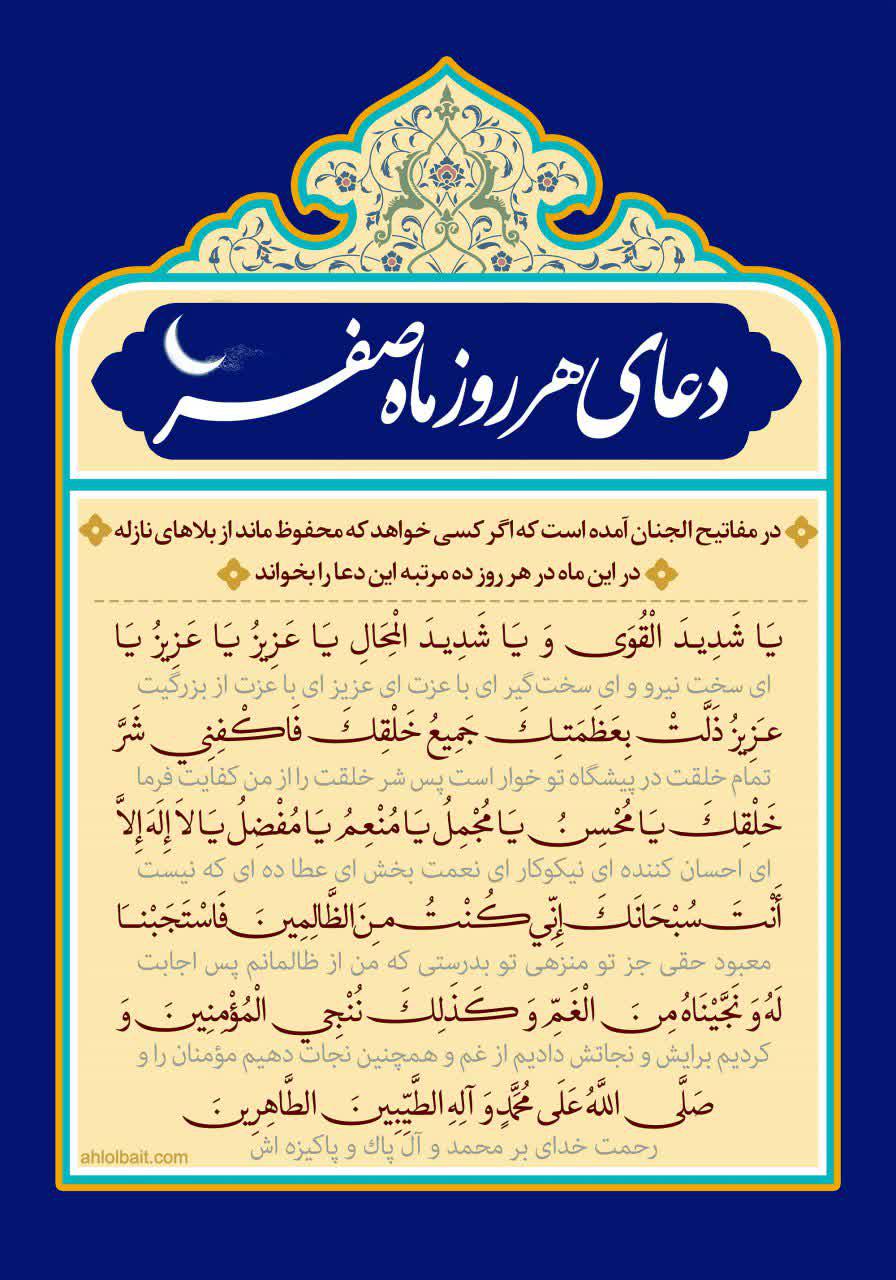 دعای هر روز ماه صفر
در مفاتیح الجنان آمده است که اگر کسی خواهد که محفوظ ماند از بلاهای نازله
در این ماه در هر روز ده مرتبه این دعا را بخواند
يَا شَدِيدَ الْقُوَى وَ يَا شَدِيدَ الْمِحَالِ يَا عَزِيزُ يَا عَزِيزُ يَا
ای سخت نیرو و ای سخت‌گیر ای با عزت ای عزیز ای با عزت از بزرگیت
عَزِيزُ ذَلَّتْ بِعَظَمَتِكَ جَمِيعُ خَلْقِكَ فَاكْفِنِي شَرَّ
تمام خلقت در پیشگاه تو خوار است پس شر خلقت را از من کفایت فرما
خَلْقِكَ يَا مُحْسِنُ يَا مُجْمِلُ يَا مُنْعِمُ يَا مُفْضِلُ يَا لاَ إِلَهَ إِلاَّ
ای احسان کننده ای نیکوکار ای نعمت بخش ای عطا ده ای که نیست
أَنْتَ سُبْحَانَكَ إِنِّي كُنْتُ مِنَ الظَّالِمِينَ فَاسْتَجَبْنَا
معبود حقی جز تو منزهی تو بدرستی که من از ظالمانم پس اجابت
لَهُ وَ نَجَّيْنَاهُ مِنَ الْغَمِّ وَ كَذَلِكَ نُنْجِي الْمُؤْمِنِينَ وَ
کردیم برایش و نجاتش دادیم از غم و همچنین نجات دهیم مؤمنان را و
صَلَّى اللَّهُ عَلَى مُحَمَّدٍ وَ آلِهِ الطَّيِّبِينَ الطَّاهِرِينَ
رحمت خدای بر محمد و آل پاک و پاکیزه اش
ahlolbait.com